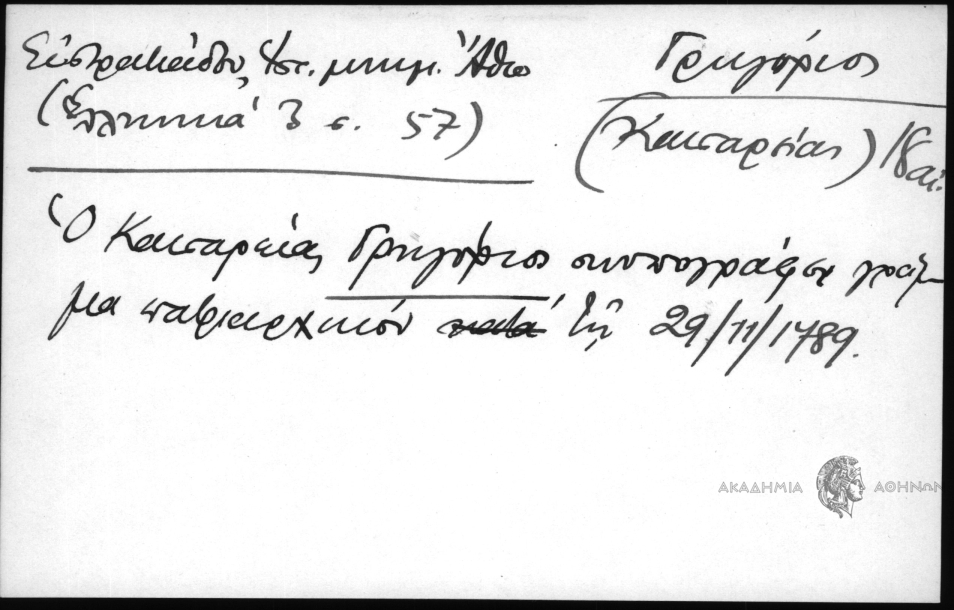 Εὐστρατιάδου, Ἱστ. μνημ. Ἄθω
(Ἑλληνικά 3 σ. 57)
Γρηγόριος
(Καισαρείας) 18 αἰ.
Ὁ Καισαρείας Γρηγόριος συνυπογράφει γράμ-
μα πατριαρχικόν τῇ 29/11/1789.
ΑΚΑΔΗΜΙΑ ΑΘΗΝΩΝ